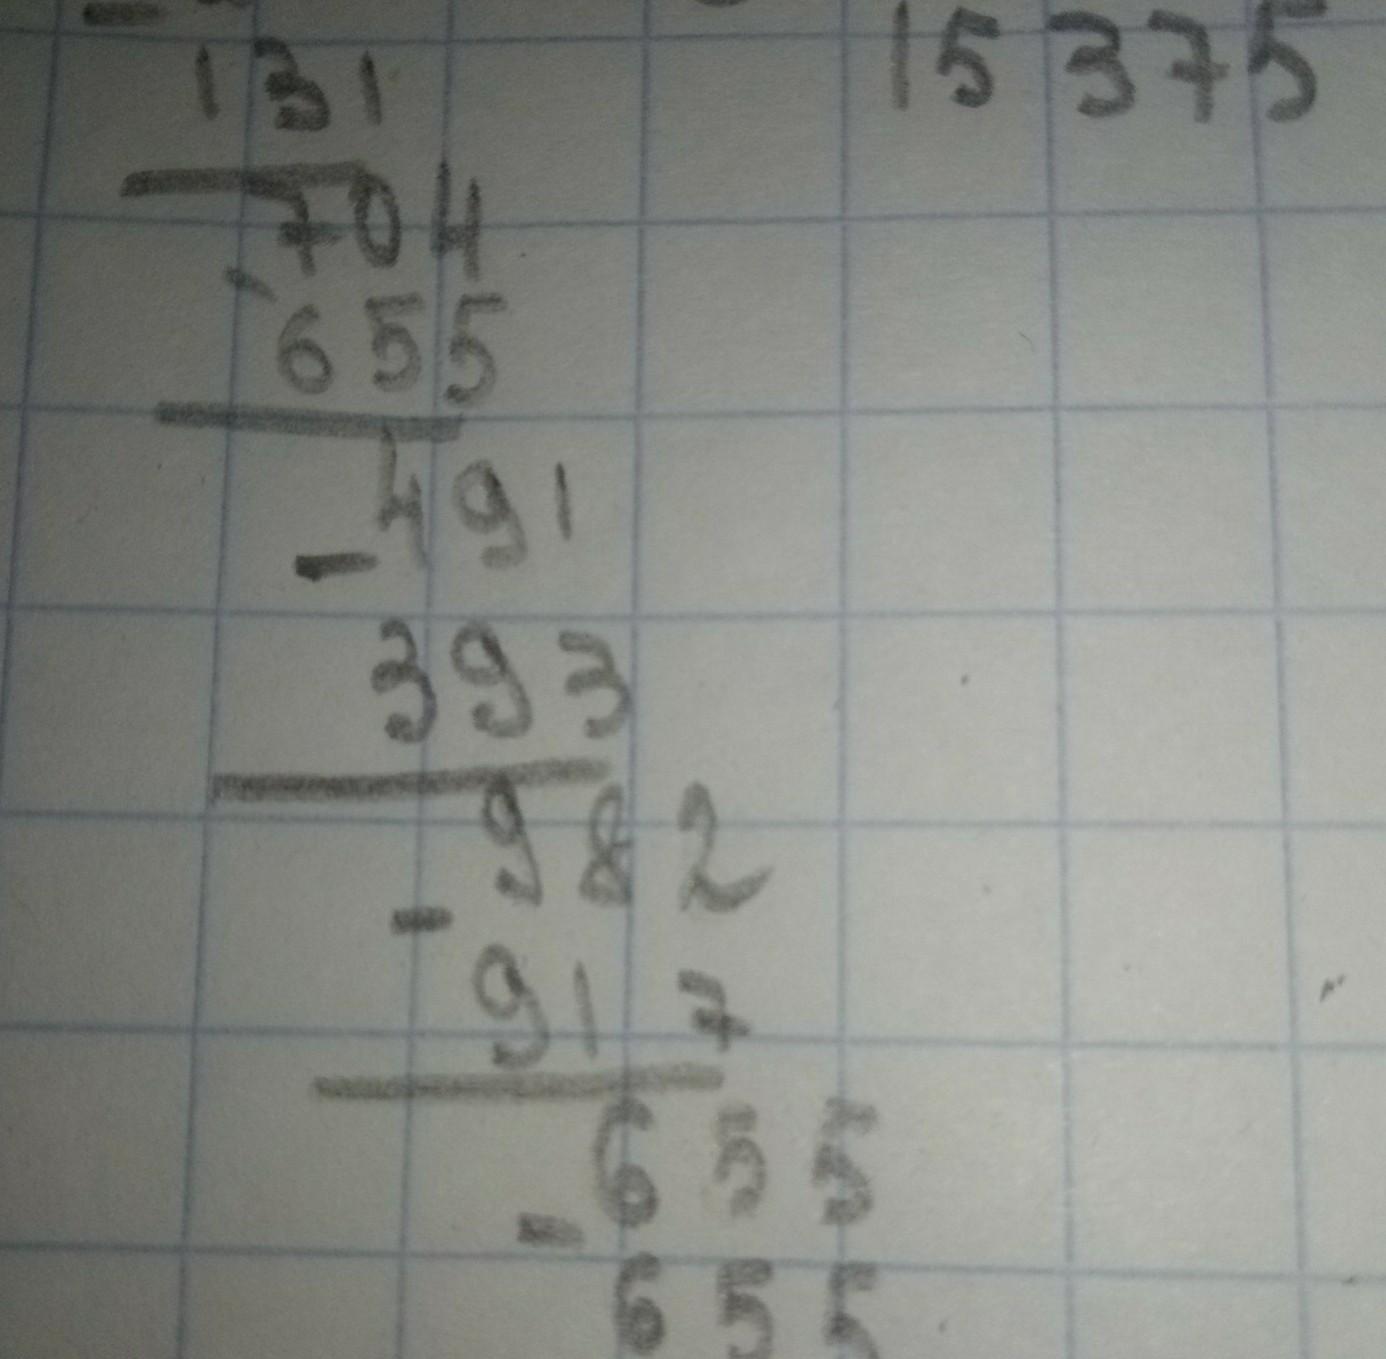 - 131 15375
704
- 655
491
- 393
982
- 917
655
- 655